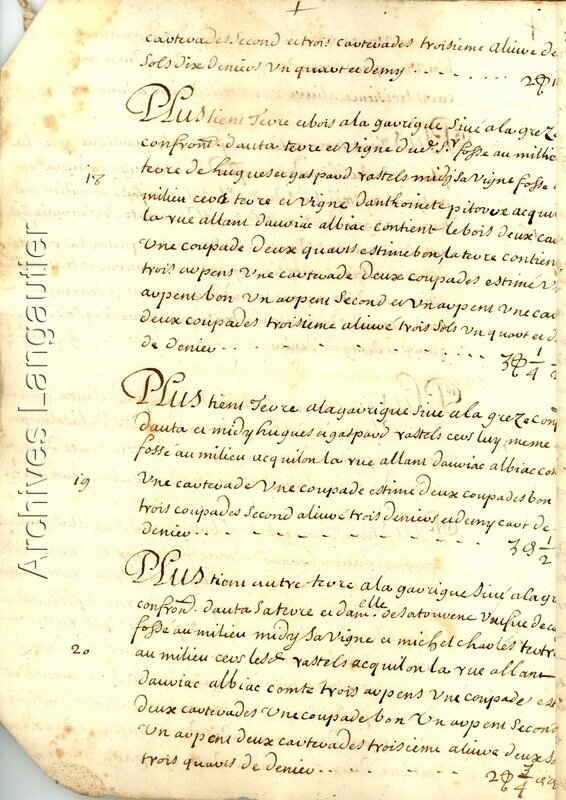 carterades Second et trois carterades troisieme aliure de
Sols dix deniers Un quart et demy
PLus tient Terre et bois a la garrigue Siue a la greze
confron^t. d'auta terre et vigne du d^t. S^r. fossé au millie
18 terre de hugues et gaspard rastels midy Sa Vigne fosse
milieu cers terre et vigne d'anthoinete pitorre acqui
la rue allant d'auriac albiac contient le bois deux car
Une coupade deux quarts estimé bon la terre contien
trois arpens Une carterade deux coupades estimé U
arpent bon Un arpent Second et Un arpent Une car
deux coupades troisieme aliuré trois Sols Un quart et d
de denier 3 1/4
PLus tient Terre a la garrigue Siue a la greze con
d'auta et midy hugues et gaspard rastels cers luy meme
fossé au milieu acquilon la rue allant d'auriac albiac con
19 Une carterade Une coupade estimé deux coupades bon
trois coupades Second aliuré trois deniers et demy cart de
denier 3 1/2
PLus tient autre terre a la garrigue Siue a la gr
confron^t. d'auta Sa terre et dam^elle. de Latourene
fossé au milieu midy Sa Vigne et michel charles tertre
20 au milieu cers lesd^t rastels acquilon la rue allant
d'auriac albiac comte trois arpens Une coupade est
deux carterades Une coupade bon Un arpent Second
Un arpent deux carterades troisieme aliure deux So
trois quarts de denier 3/4
Archives Langautier